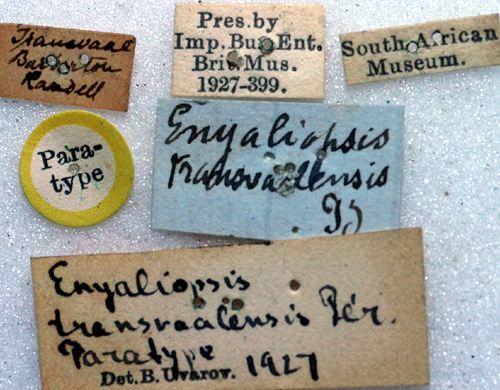 Transvaal
Barberton
Randell
Pres. by
Imp. Bur. Ent.
Brit. Mus.
1927-399.
South African
Museum.
Para-
type
Enyaliopsis
transvaalensis
Enyaliopsis
transvaalensis Pér.
Paratype 1927
Det. B. Uvarov.